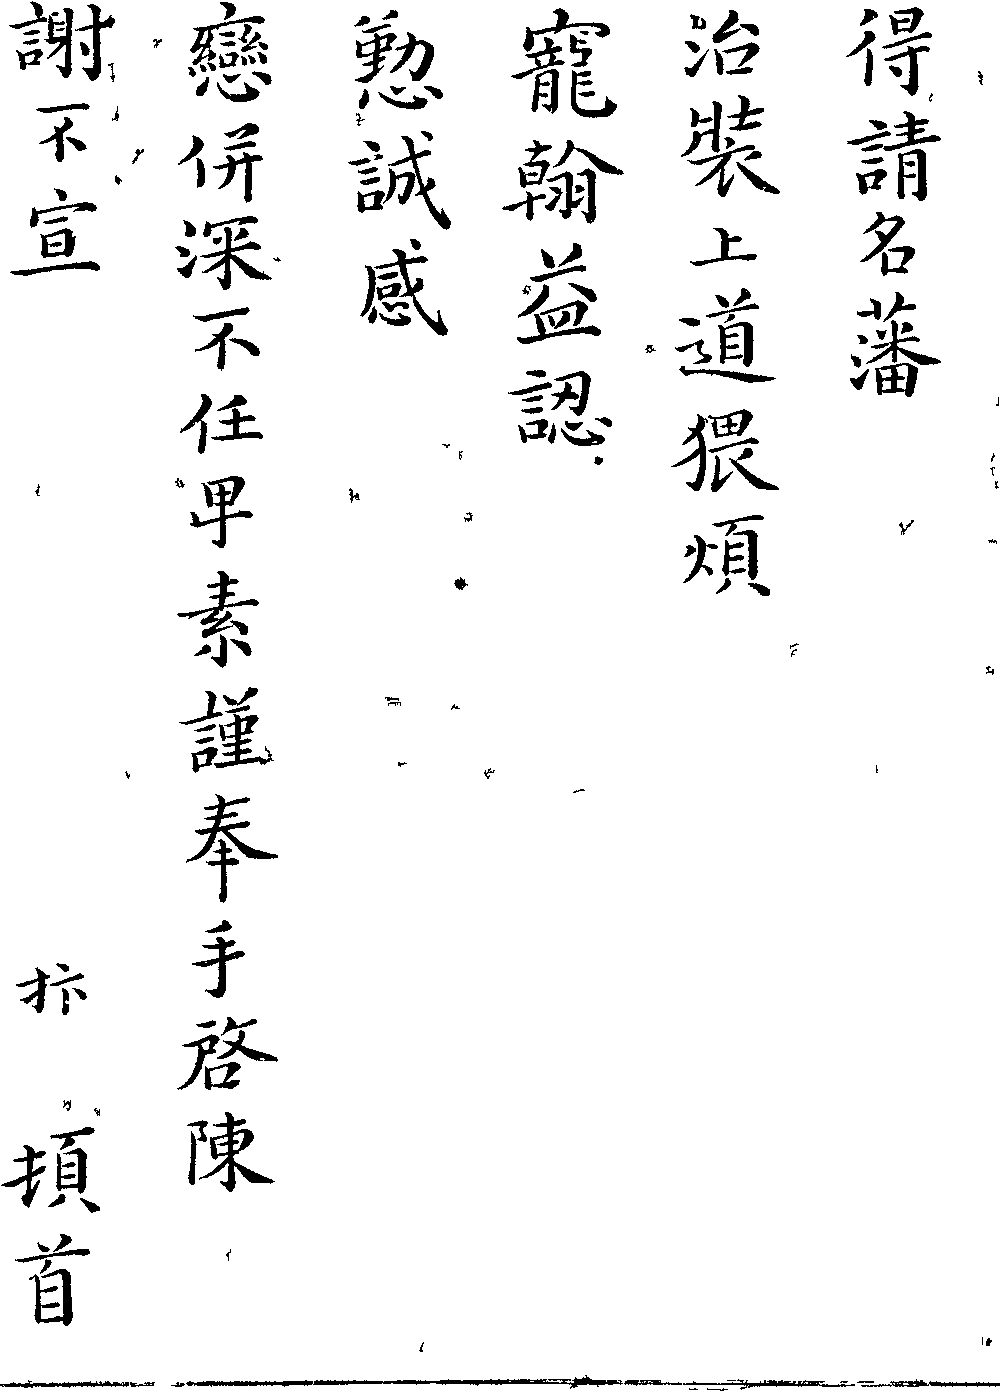 得請名藩
治裝上道猥煩
寵翰益認
懃誠感
戀併深不任卑素謹奉手啓陳
謝不宣　抃　頓首